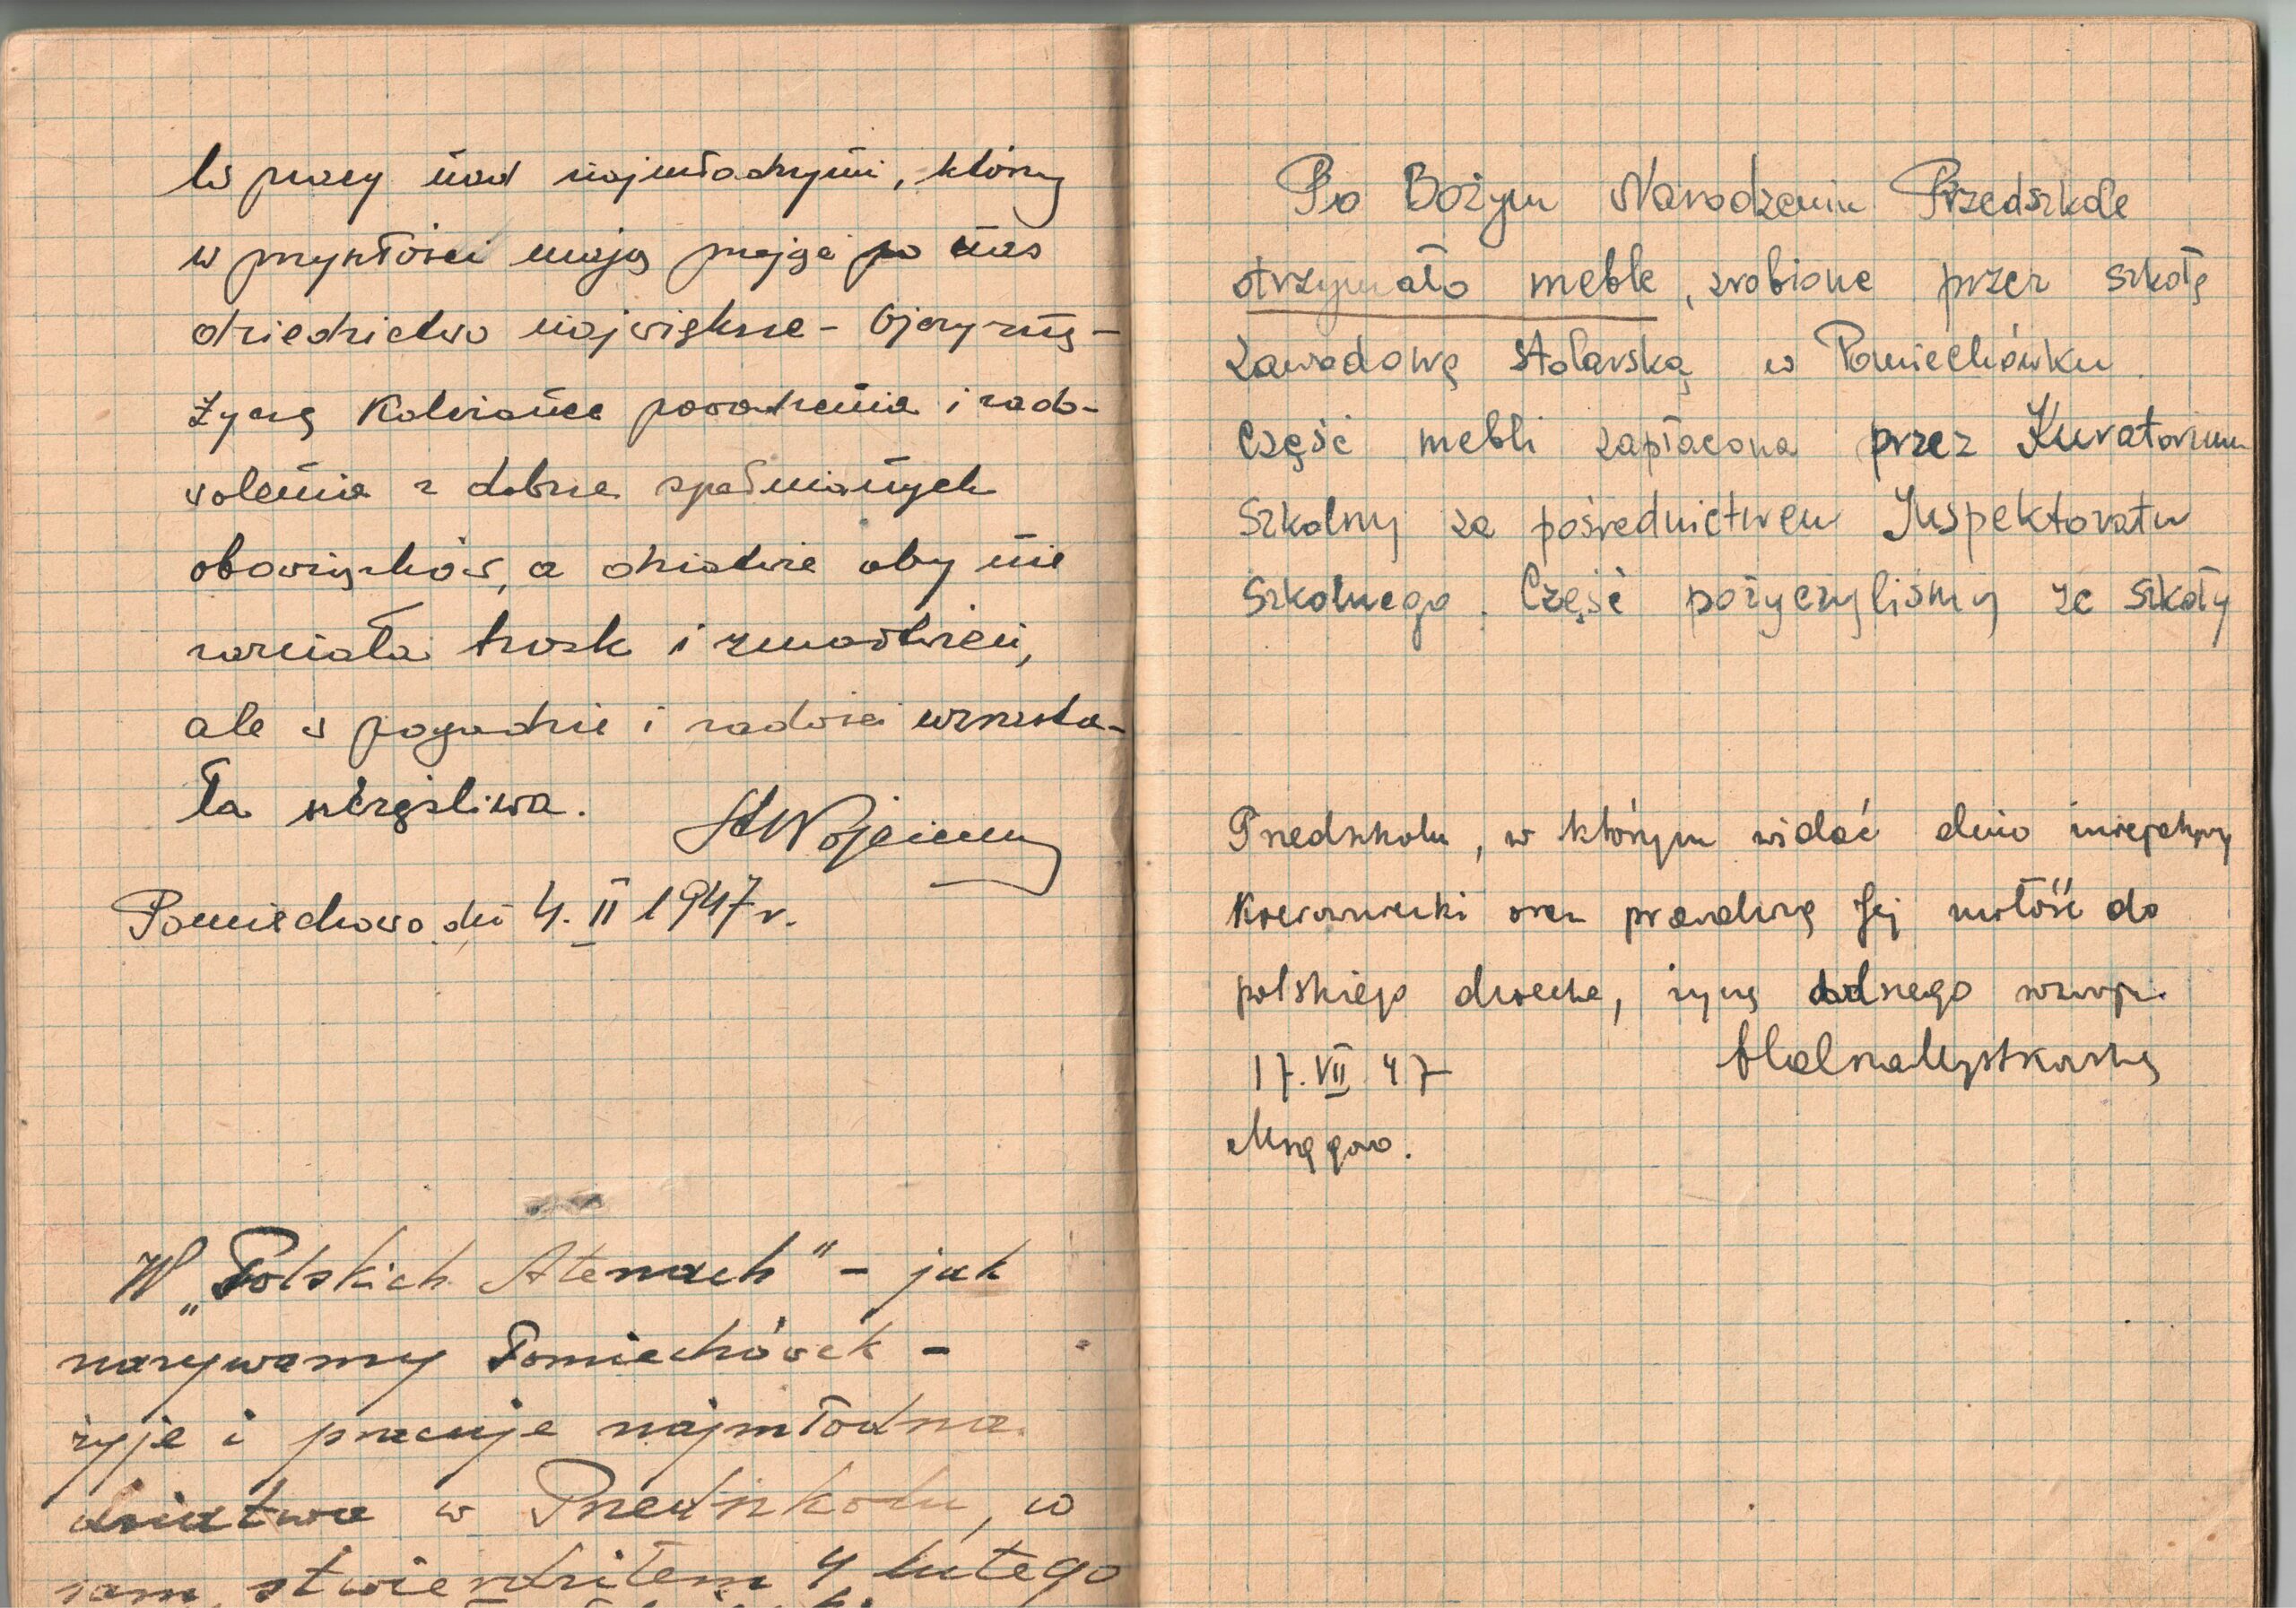 W pracy nad najmłodszymi, którzy
w przyszłości mają przejąć po nas
dziedzictwo największe - Ojczyznę -
życzę Koleżance powodzenia i zado-
wolenia z dobrze spełnianych
obowiązków, a dziatwie aby nie
zaznała trosk i zmartwień,
ale w pogodzie i radości wzrasta-
ła szczęśliwa.
Pomiechowo dn 4. II 1947 r.
W „Polskich Atenach" - jak
nazywamy Pomiechówek -
żyje i pracuje najmłodsza
dziatwa w Przedszkolu, co
sam stwierdziłem 4 lutego
Po Bożym Narodzeniu Przedszkole
otrzymało meble, zrobione przez szkołę
zawodową stolarską w Pomiechówku.
Część mebli zapłacona przez Kuratorium
Szkolny za pośrednictwem Inspektoratu
Szkolnego. Część pożyczyliśmy ze szkoły
Przedszkolu, w którym widać dużo
Kierowniczki oraz prawdziwą Jej miłość do
polskiego dziecka, życzę dalszego rozwoju.
17. VII 47